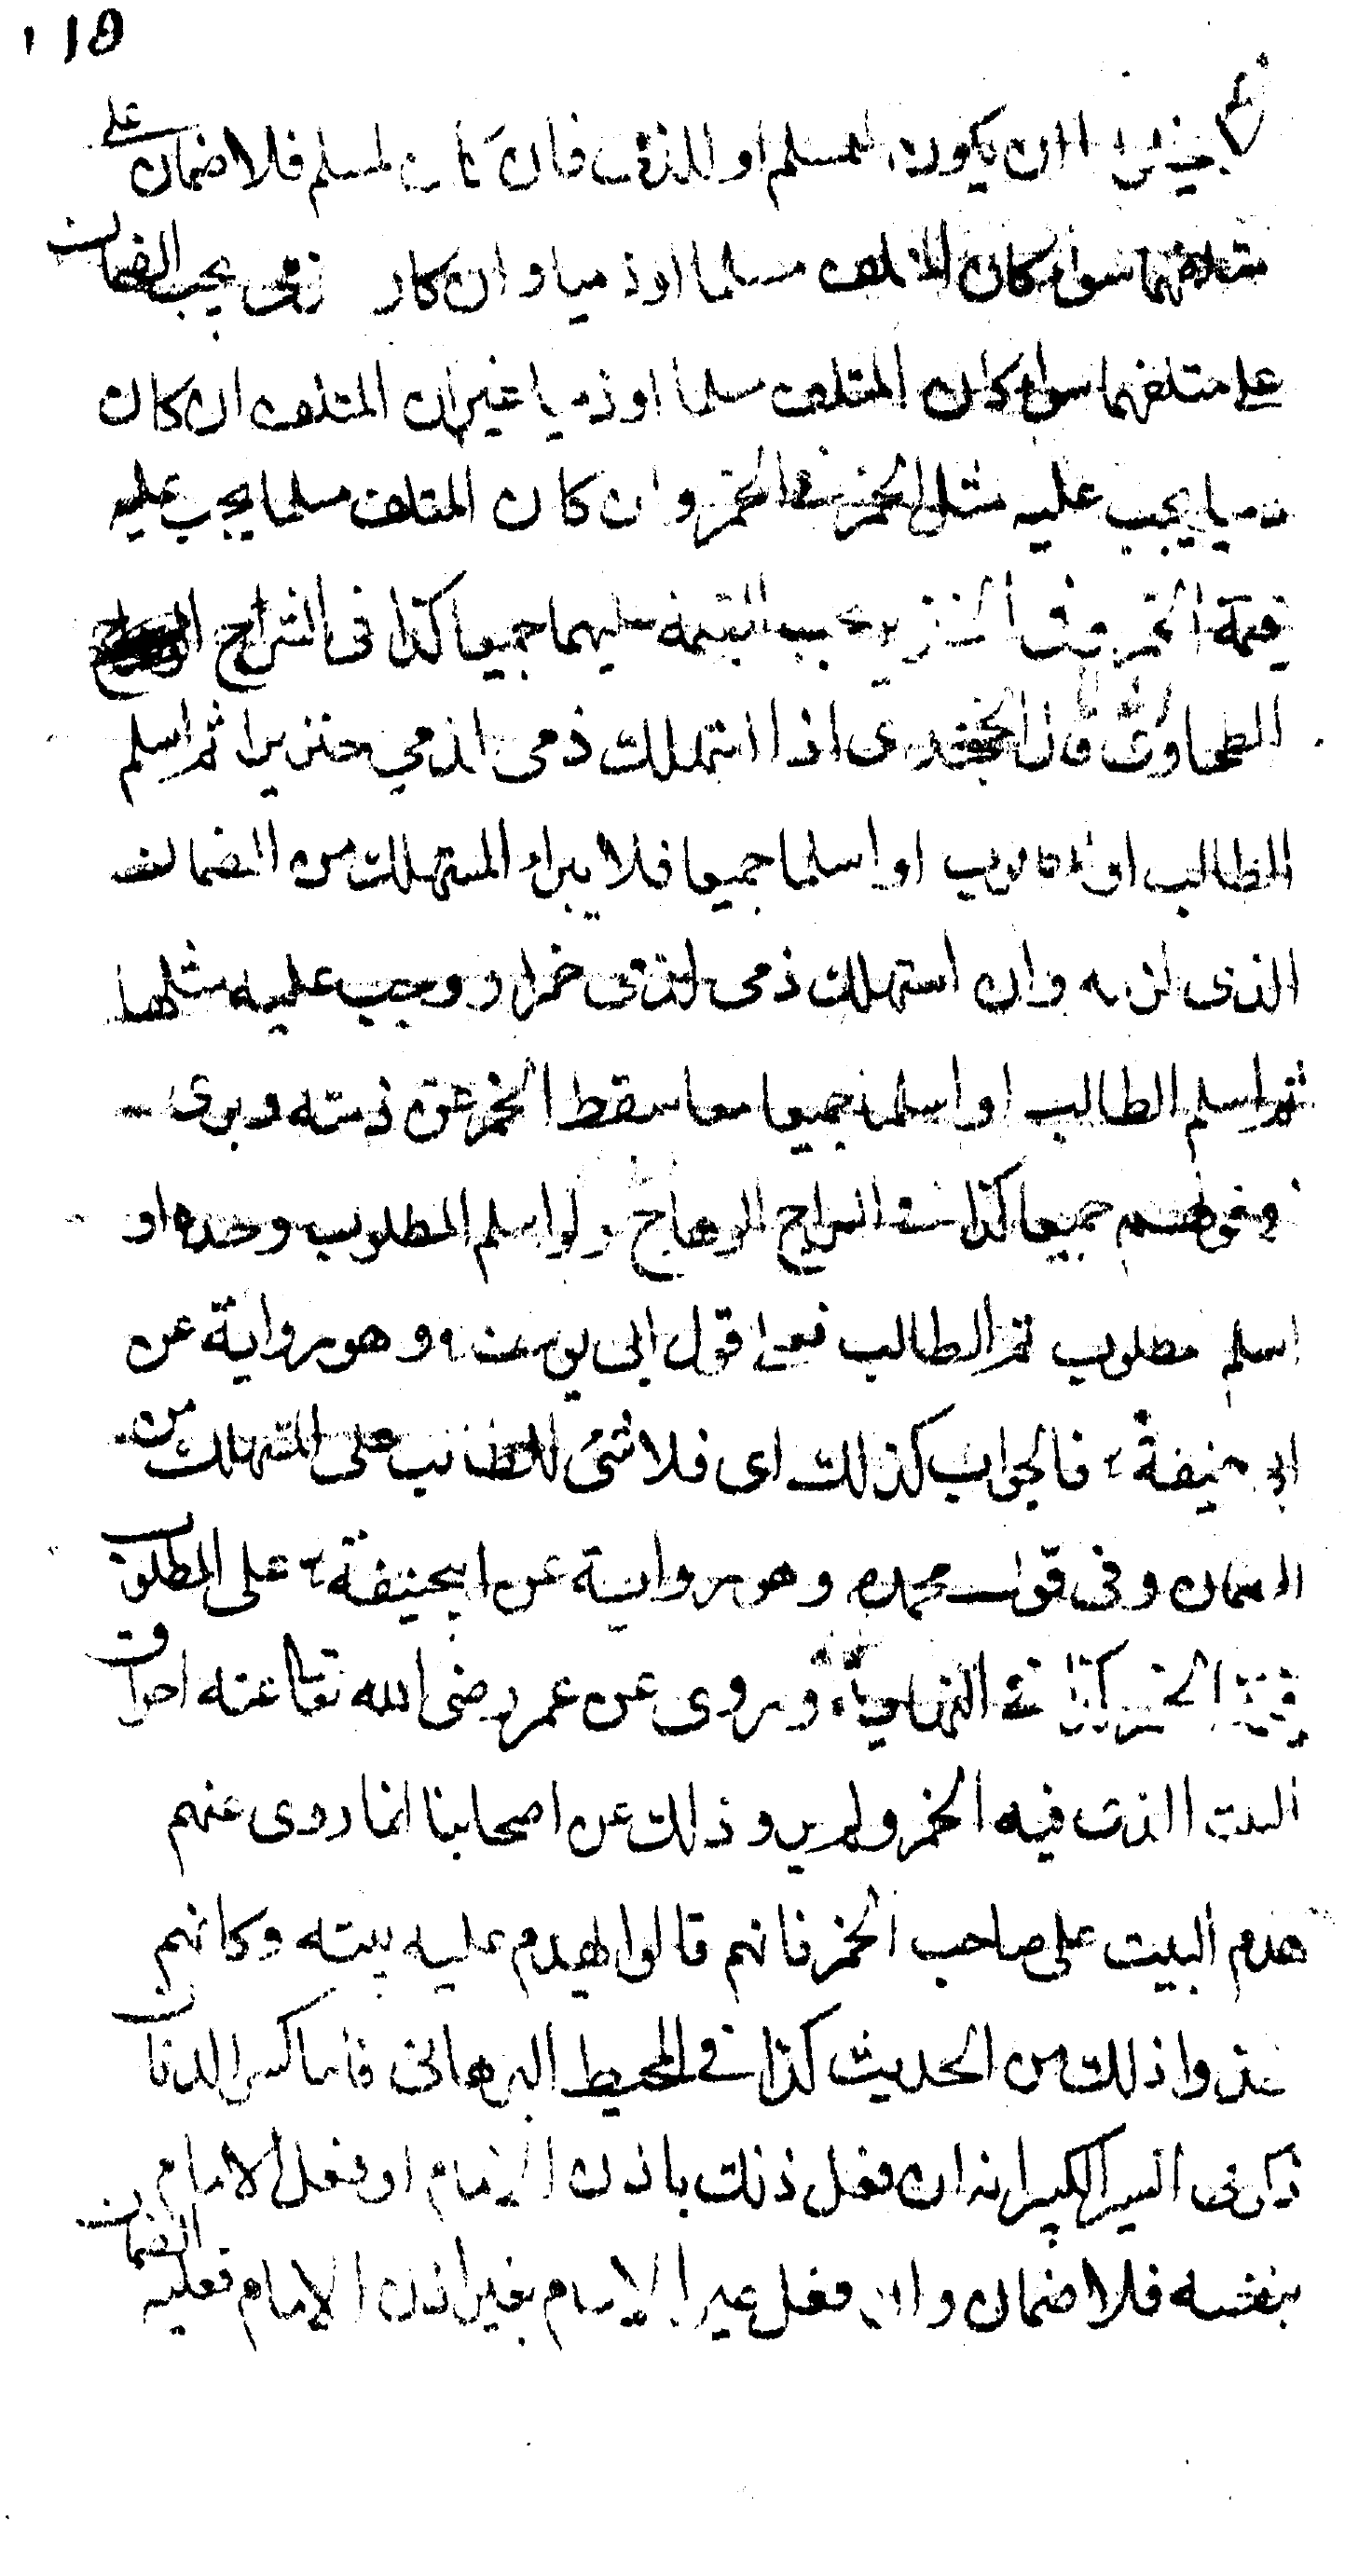 ١١٥
اان يكون لمسلم او للذمى فان كان لمسلم فلا ضمان على
متلفهما سواء كان المتلف مسلما او ذميا وان كان ذمى يجب الضمان
على متلفهما سواء كان المتلف مسلما او ذميا غير ان المتلف ان كان
ذميا يجب عليه مثل الخمر فى الخمر وان كان المتلف مسلما يجب عليه
قيمة الخمر وفى الخنزير يجب القيمة عليهما جميعا كذا فى شراح
الطحاوى قال الخجندى اذا استهلك ذمى لذمي خنزيرا ثم اسلم
الطالب او المطلوب او اسلما جميعا فلا يبراء المستهلك من الضمان
الذى لزمه وان استهلك ذمى لذمى خمرا ووجب عليه مثلها
ثم اسلم الطالب او اسلما جميعا معا سقط الخمر عن ذمته وبرى
فى قولهم جميعا كذا فى السراج الوهاج ولو اسلم المطلوب وحده او
اسلم مطلوب ثم الطالب فعلى قول ابى يوسف وهو رواية عن
ابى حنيفة فالجواب كذلك اى فلا شئ للطالب على المستهلك من
الضمان وفى قول محمد وهو رواية عن ابيحنيفة على المطلوب
قيمة الخمر كذا فى النهاية وروى عن عمر رضى الله تعالى عنه احراق
البيت الذى فيه الخمر ولم يرو ذلك عن اصحابنا انما روى عنهم
هدم البيت على صاحب الخمر فانهم قالوا يهدم عليه بيته وكانهم
ذلك من الحديث كذا فى المحيط البرهانى فاما كسر الدنان
ذكر فى السير الكبير انه ان فعل ذلك باذن الامام او فعل الامام
بنفسه فلا ضمان وان فعل غير الامام بغير اذن الامام فعليه الضمان